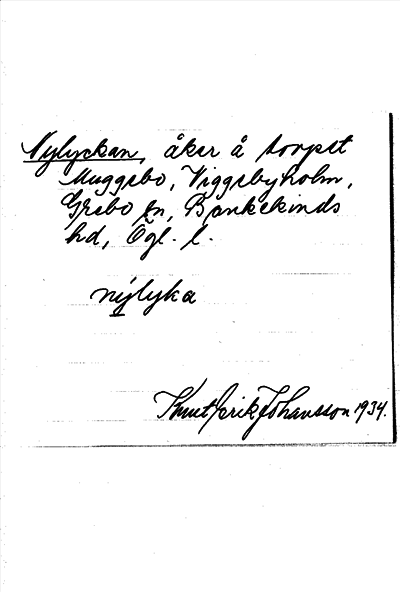 Nylyckan, åker å torpet
Muggebo, Viggebyholm,
Grebo sn, Bankekinds
hd, Ögl. l.
nylyka
Knut Erik Johansson 1934.